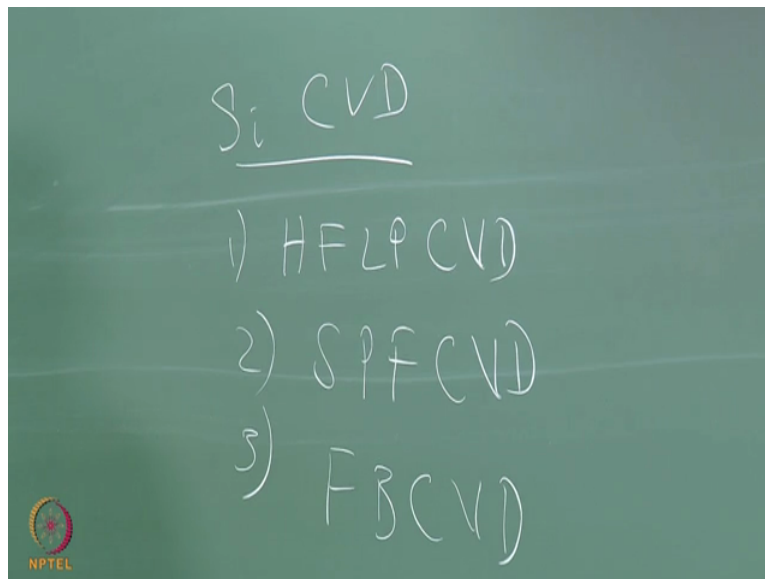 Si CVD
1) HFLPCVD
2) SPFCVD
3) FBCVD
NPTEL